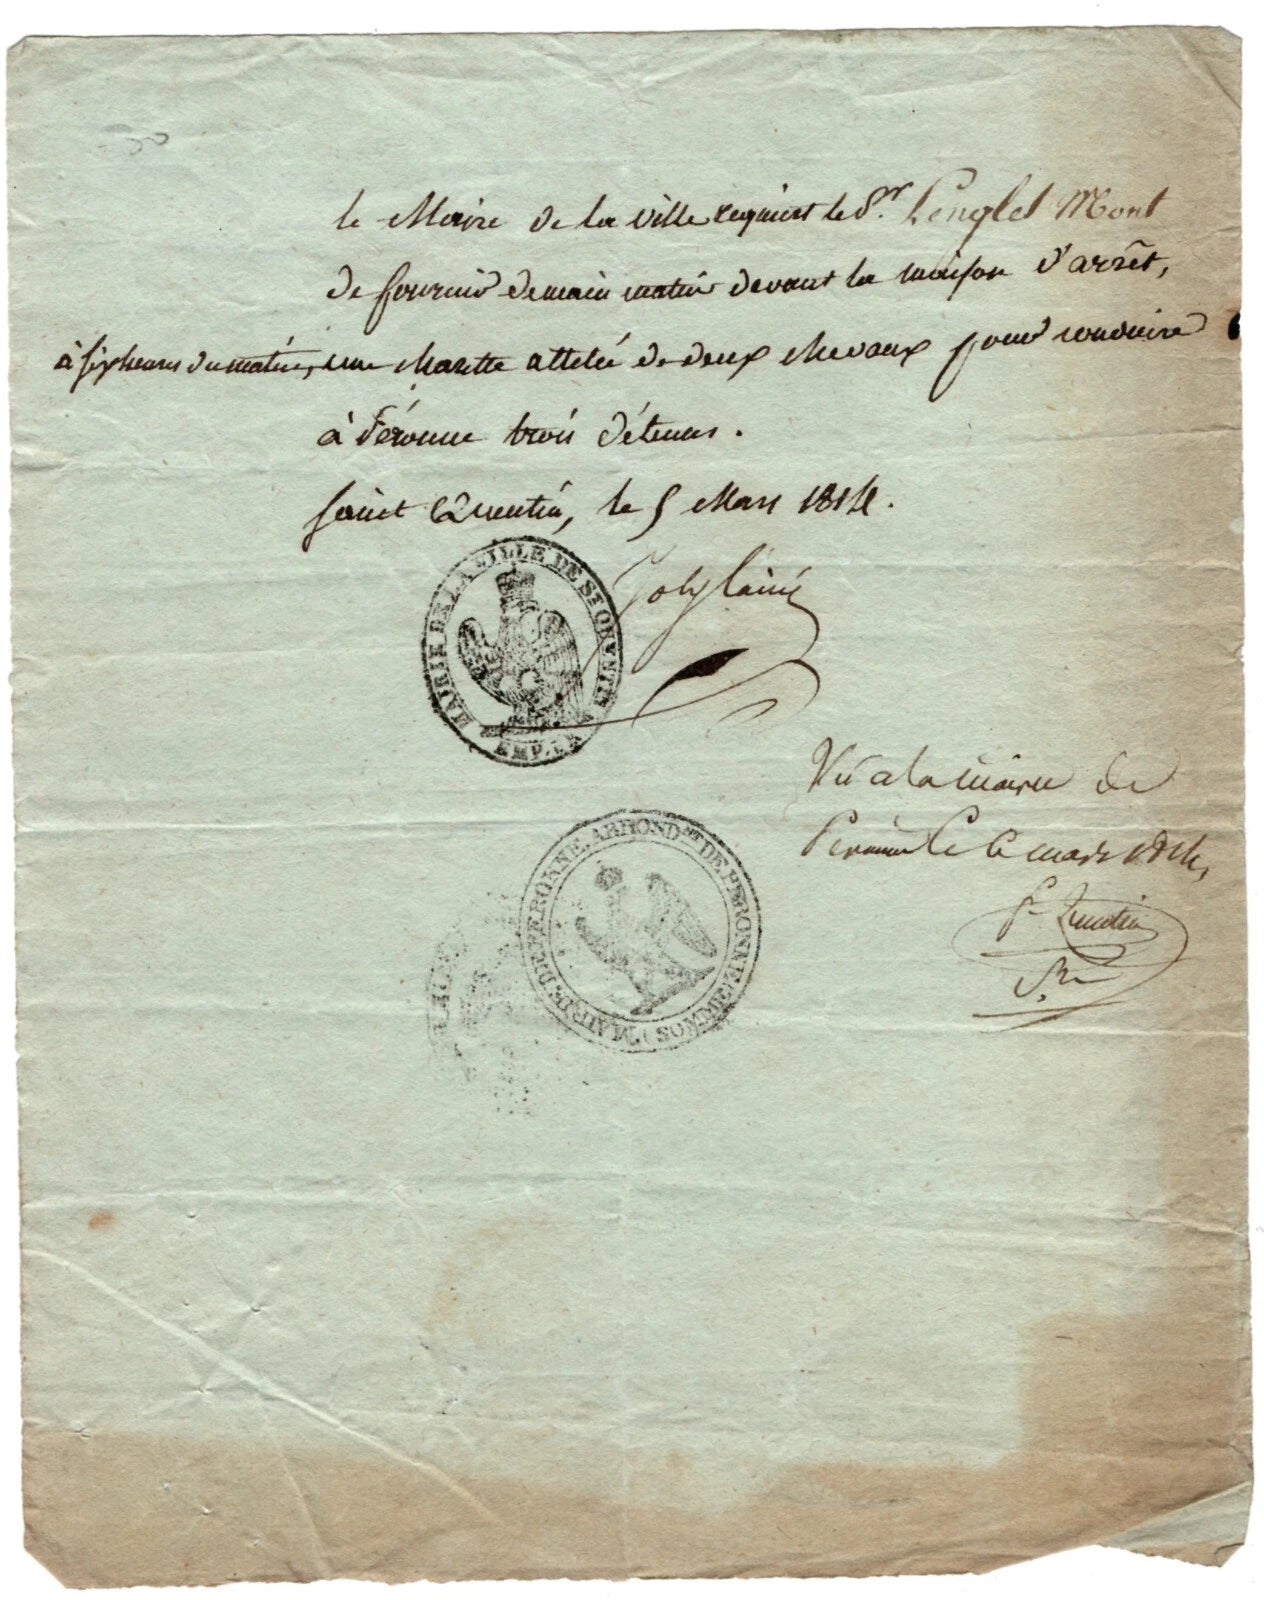 30
le Maire de la ville requiert le Sr. Lenglet Mont
de fournir demain matin devant la maison d'arrêt,
à six heures du matin, une charette attelée de deux chevaux pour conduire
à Péronne trois détenus.
Saint Quentin, le 5 Mars 1814.
MAIRIE DE LA VILLE DE ST QUENTIN
EMP. FR
Vu a la mairie de
Peronne le 6 mars 1814,
MAIRIE DE PERONNE, ARROND.NT DE PERONNE (SOMME)